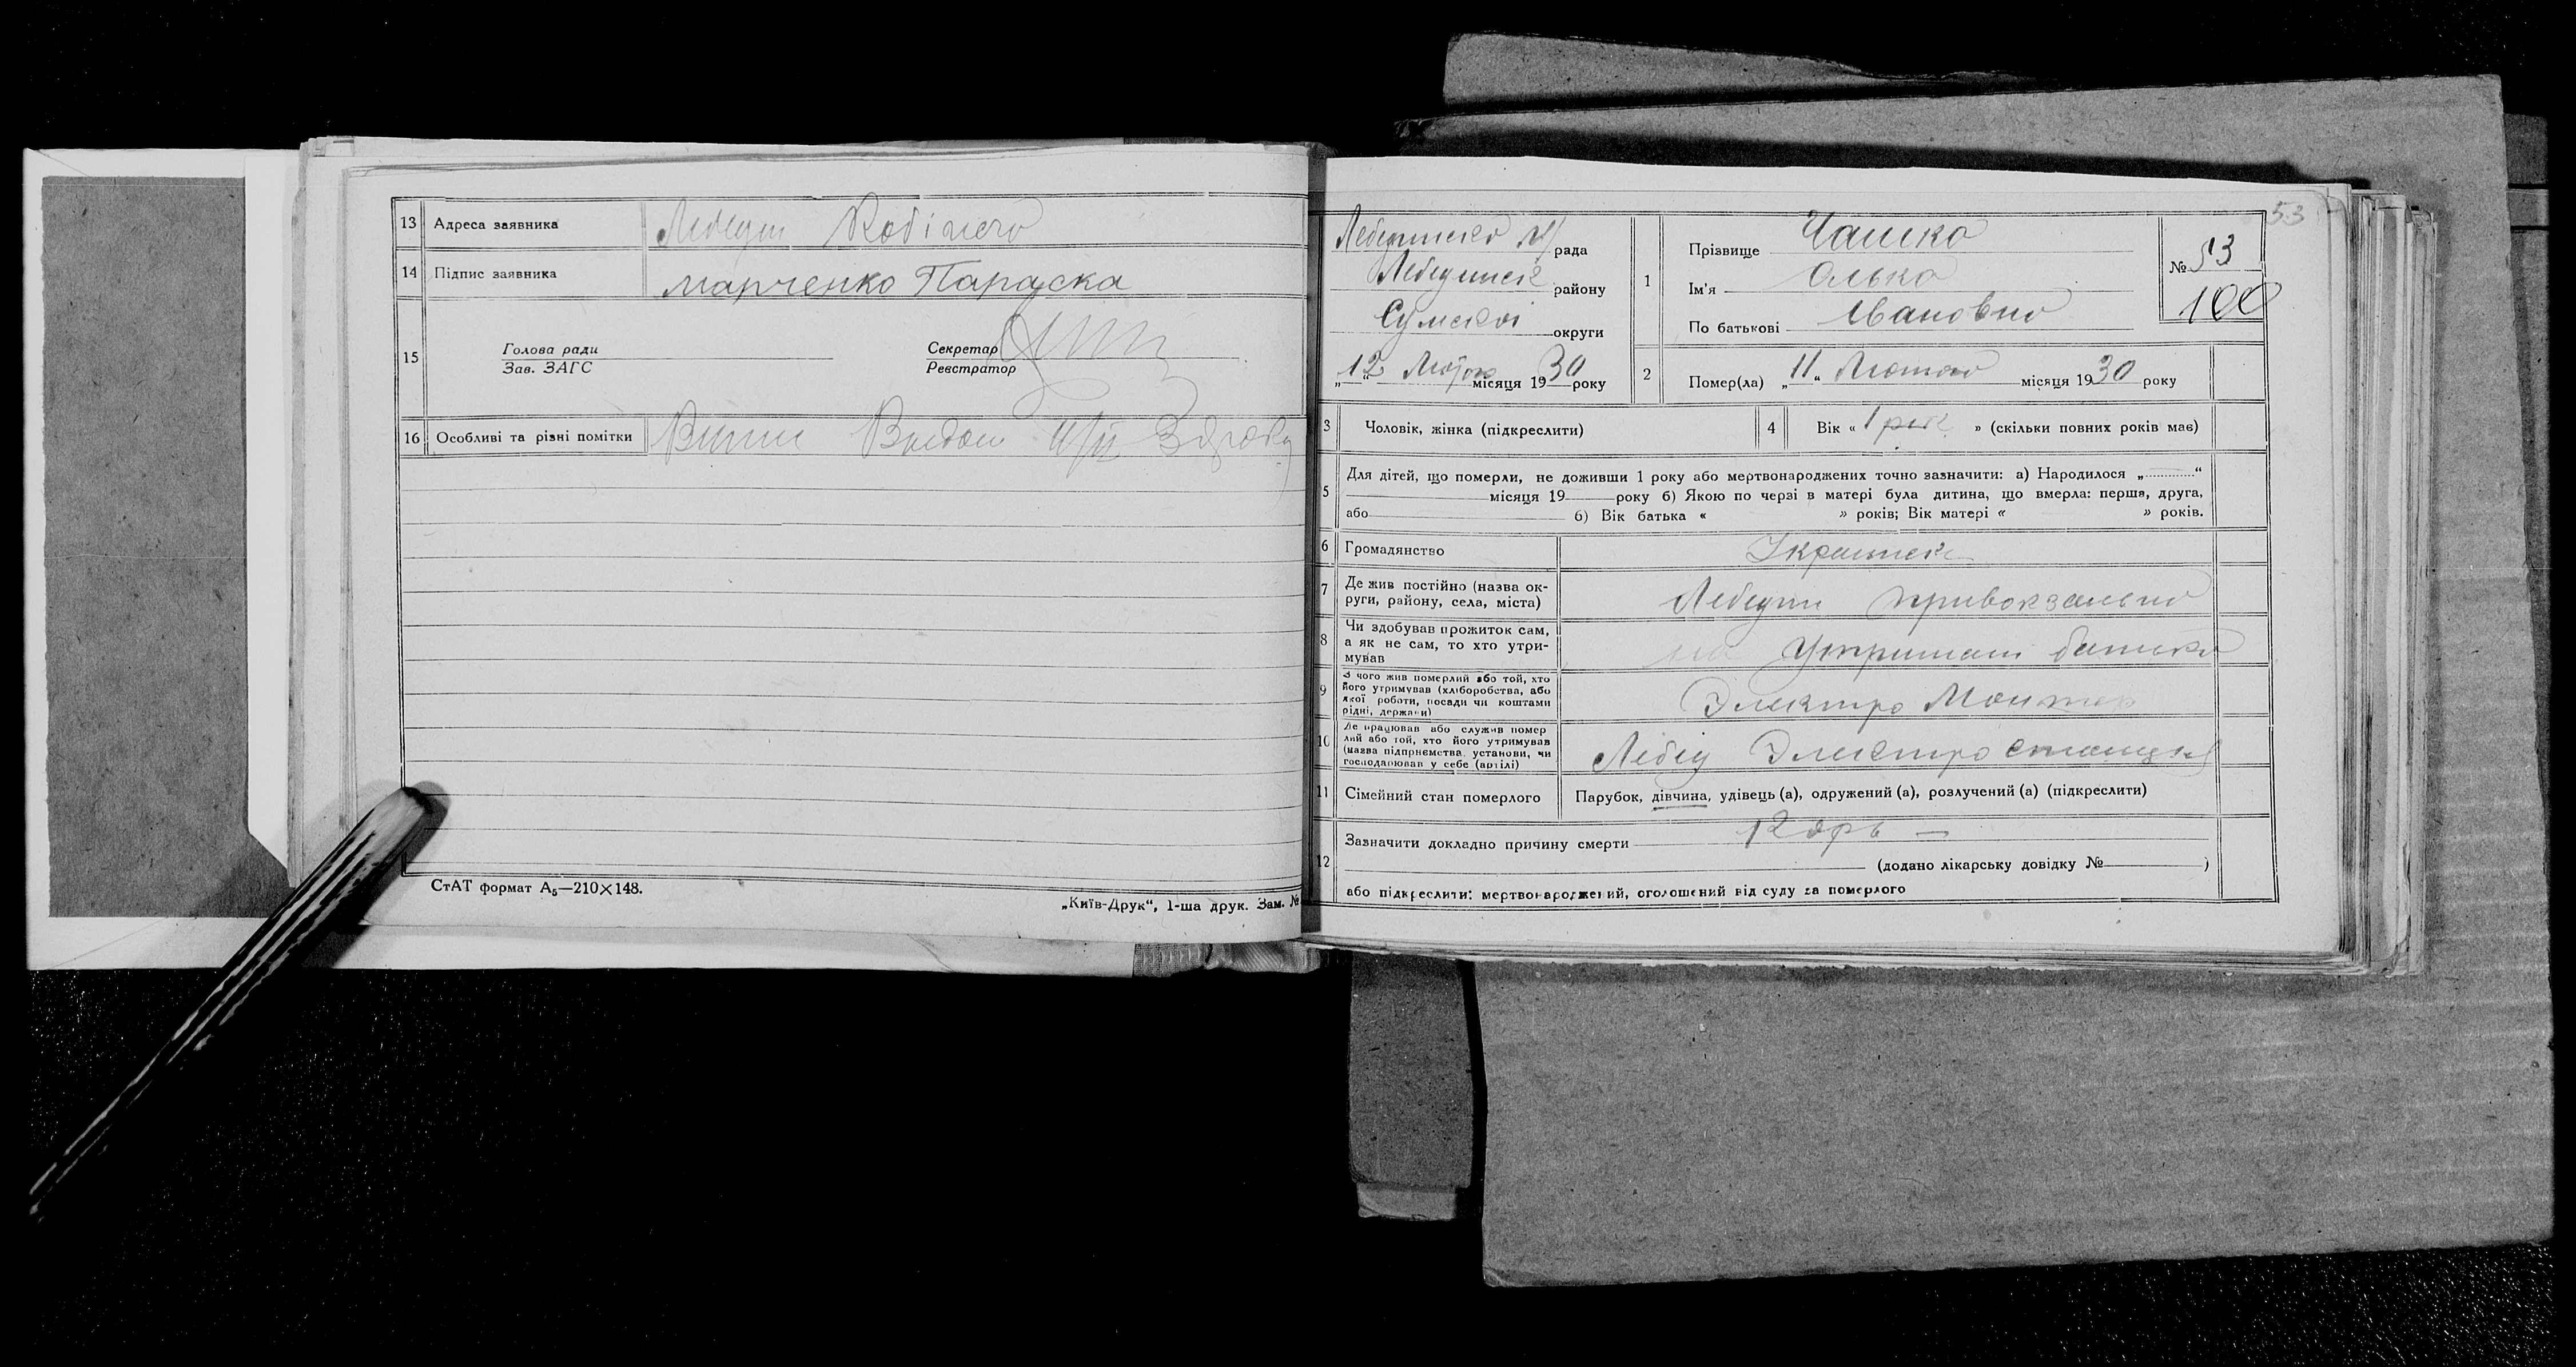 13 Адреса заявника Лебедин
14 Підпис заявника Марченко Параска
15 Голова ради
Зав. ЗАГС
Секретар
Реєстратор
16 Особливі та різні помітки
СтАТ формат А5—210×148.
„Київ-Друк“, 1-ша друк. Зам. №
53
рада
Лебединск району
Сумской округи
„12“ Лютого місяця 1930 року
1 Прізвище Чашка
Ім'я Олька
По батькові Івановна
№ 53
100
2 Помер(ла) „11“ Лютого місяця 1930 року
3 Чоловік, жінка (підкреслити)
4 Вік « 1 рік » (скільки повних років має)
5 Для дітей, що померли, не доживши 1 року або мертвонароджених точно зазначити: а) Народилося „ “
місяця 19 року б) Якою по черзі в матері була дитина, що вмерла: перша, друга,
або б) Вік батька « » років; Вік матері « » років.
6 Громадянство Украинск
7 Де жив постійно (назва округи, району, села, міста) Лебедин привокзальна
8 Чи здобував прожиток сам, а як не сам, то хто утримував на утримані батька
9 З чого жив померлий або той, хто його утримував (хліборобства, або якої роботи, посади чи коштами рідні, держави) Электро Монтер
10 Де працював або служив померлий або той, хто його утримував (назва підприємства, установи, чи господарював у себе (артілі) Лебед Электростанция
11 Сімейний стан померлого Парубок, дівчина, удівець (а), одружений (а), розлучений (а) (підкреслити)
12 Зазначити докладно причину смерти Кор
(додано лікарську довідку № )
або підкреслити: мертвонароджений, оголошений від суду за померлого